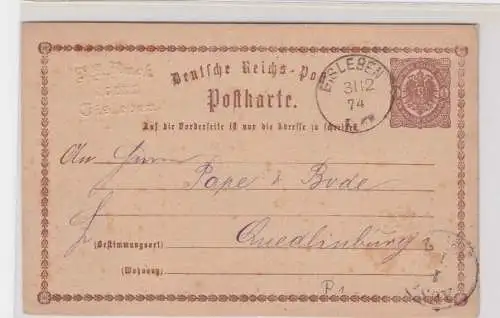 Deutsche Reichs-Post
EISLEBEN
31 12
74
Postkarte.
Auf die Vorderseite ist nur die Adresse zu schreiben.
An Herrn
Pape & Bode
(Bestimmungsort) Quedlinburg
(Wohnung)